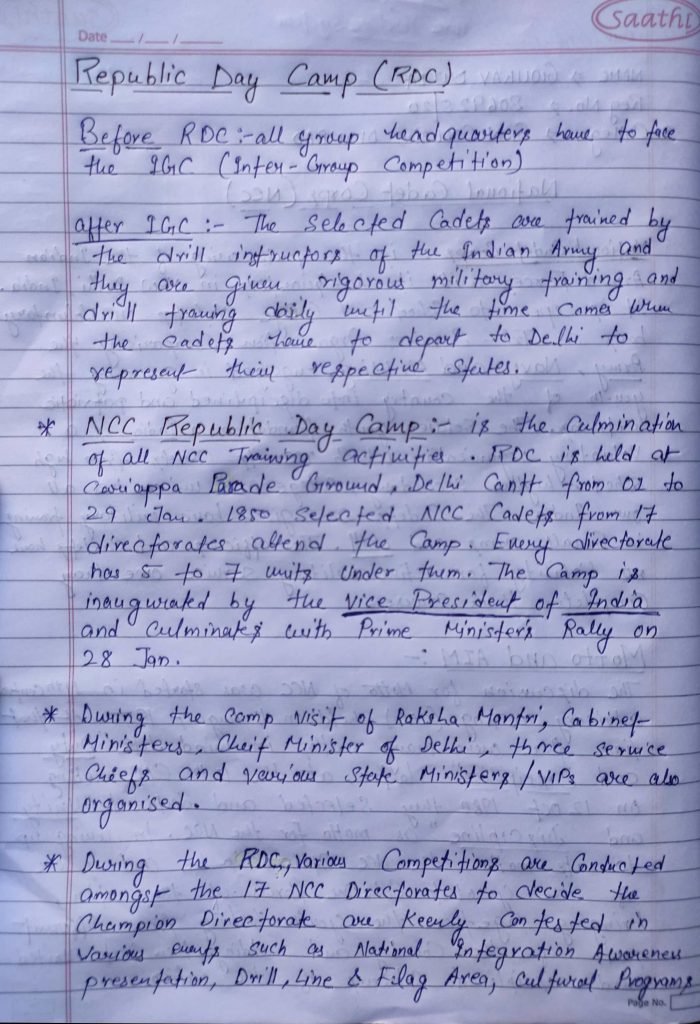 Saathi
Date __/__/____
Republic Day Camp (RDC)
Before RDC :- all group headquarters have to face
the IGC (Inter-Group Competition)
after IGC :- The Selected Cadets are trained by
the drill instructors of the Indian Army and
they are given rigorous military training and
drill traning daily until the time comes when
the Cadets have to depart to Delhi to
represent their respective states.
* NCC Republic Day Camp :- is the Culmination
of all NCC Training activities. RDC is held at
Cariappa Parade Ground, Delhi Cantt from 01 to
29 Jan. 1850 Selected NCC Cadets from 17
directorates attend the Camp. Every directorate
has 5 to 7 units Under them. The Camp is
inaugurated by the Vice President of India
and Culminates with Prime Minister's Rally on
28 Jan.
* During the Camp Visit of Raksha Mantri, Cabinet
Ministers, Cheif Minister of Delhi, three service
Chiefs and Various State Ministers / VIPs are also
organised.
* During the RDC, Various Competitions are Conducted
amongst the 17 NCC Directorates to decide the
Champion Directorate are Keenly Contested in
Various events such as National Integration Awareness
presentation, Drill, Line & Filag Area, Cultural Programs
Page No.